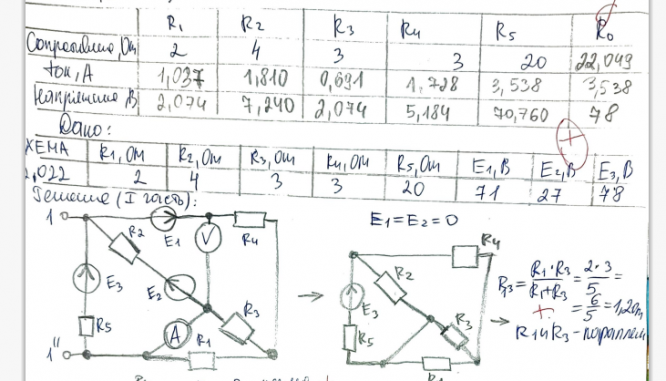 R1 R2 R3 R4 R5 R0
Сопротивление, Ом 2 4 3 3 20 22,049
ток, А 1,037 1,810 0,691 1,728 3,538 3,538
Напряжение, В 2,074 7,240 2,074 5,184 70,760 78
Дано:
ХЕМА R1, Ом R2, Ом R3, Ом R4, Ом R5, Ом E1, В E2, В E3, В
1,022 2 4 3 3 20 71 27 78
Решение (I часть):
1 E1 V R4
R2
E3 E2
R5 A R3
1" R1
E1=E2=0
R4
R2
E3 R3
R5
R1
R13 = R1·R3 / R1+R3 = 2·3 / 5 =
= 6/5 = 1,2 Ом
R1 и R3 - параллел